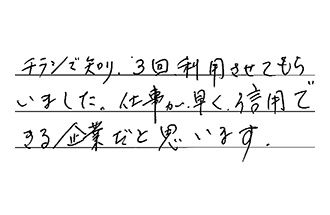 チラシで知り、3回利用させてもら
いました。仕事が早く、信用で
きる企業だと思います。